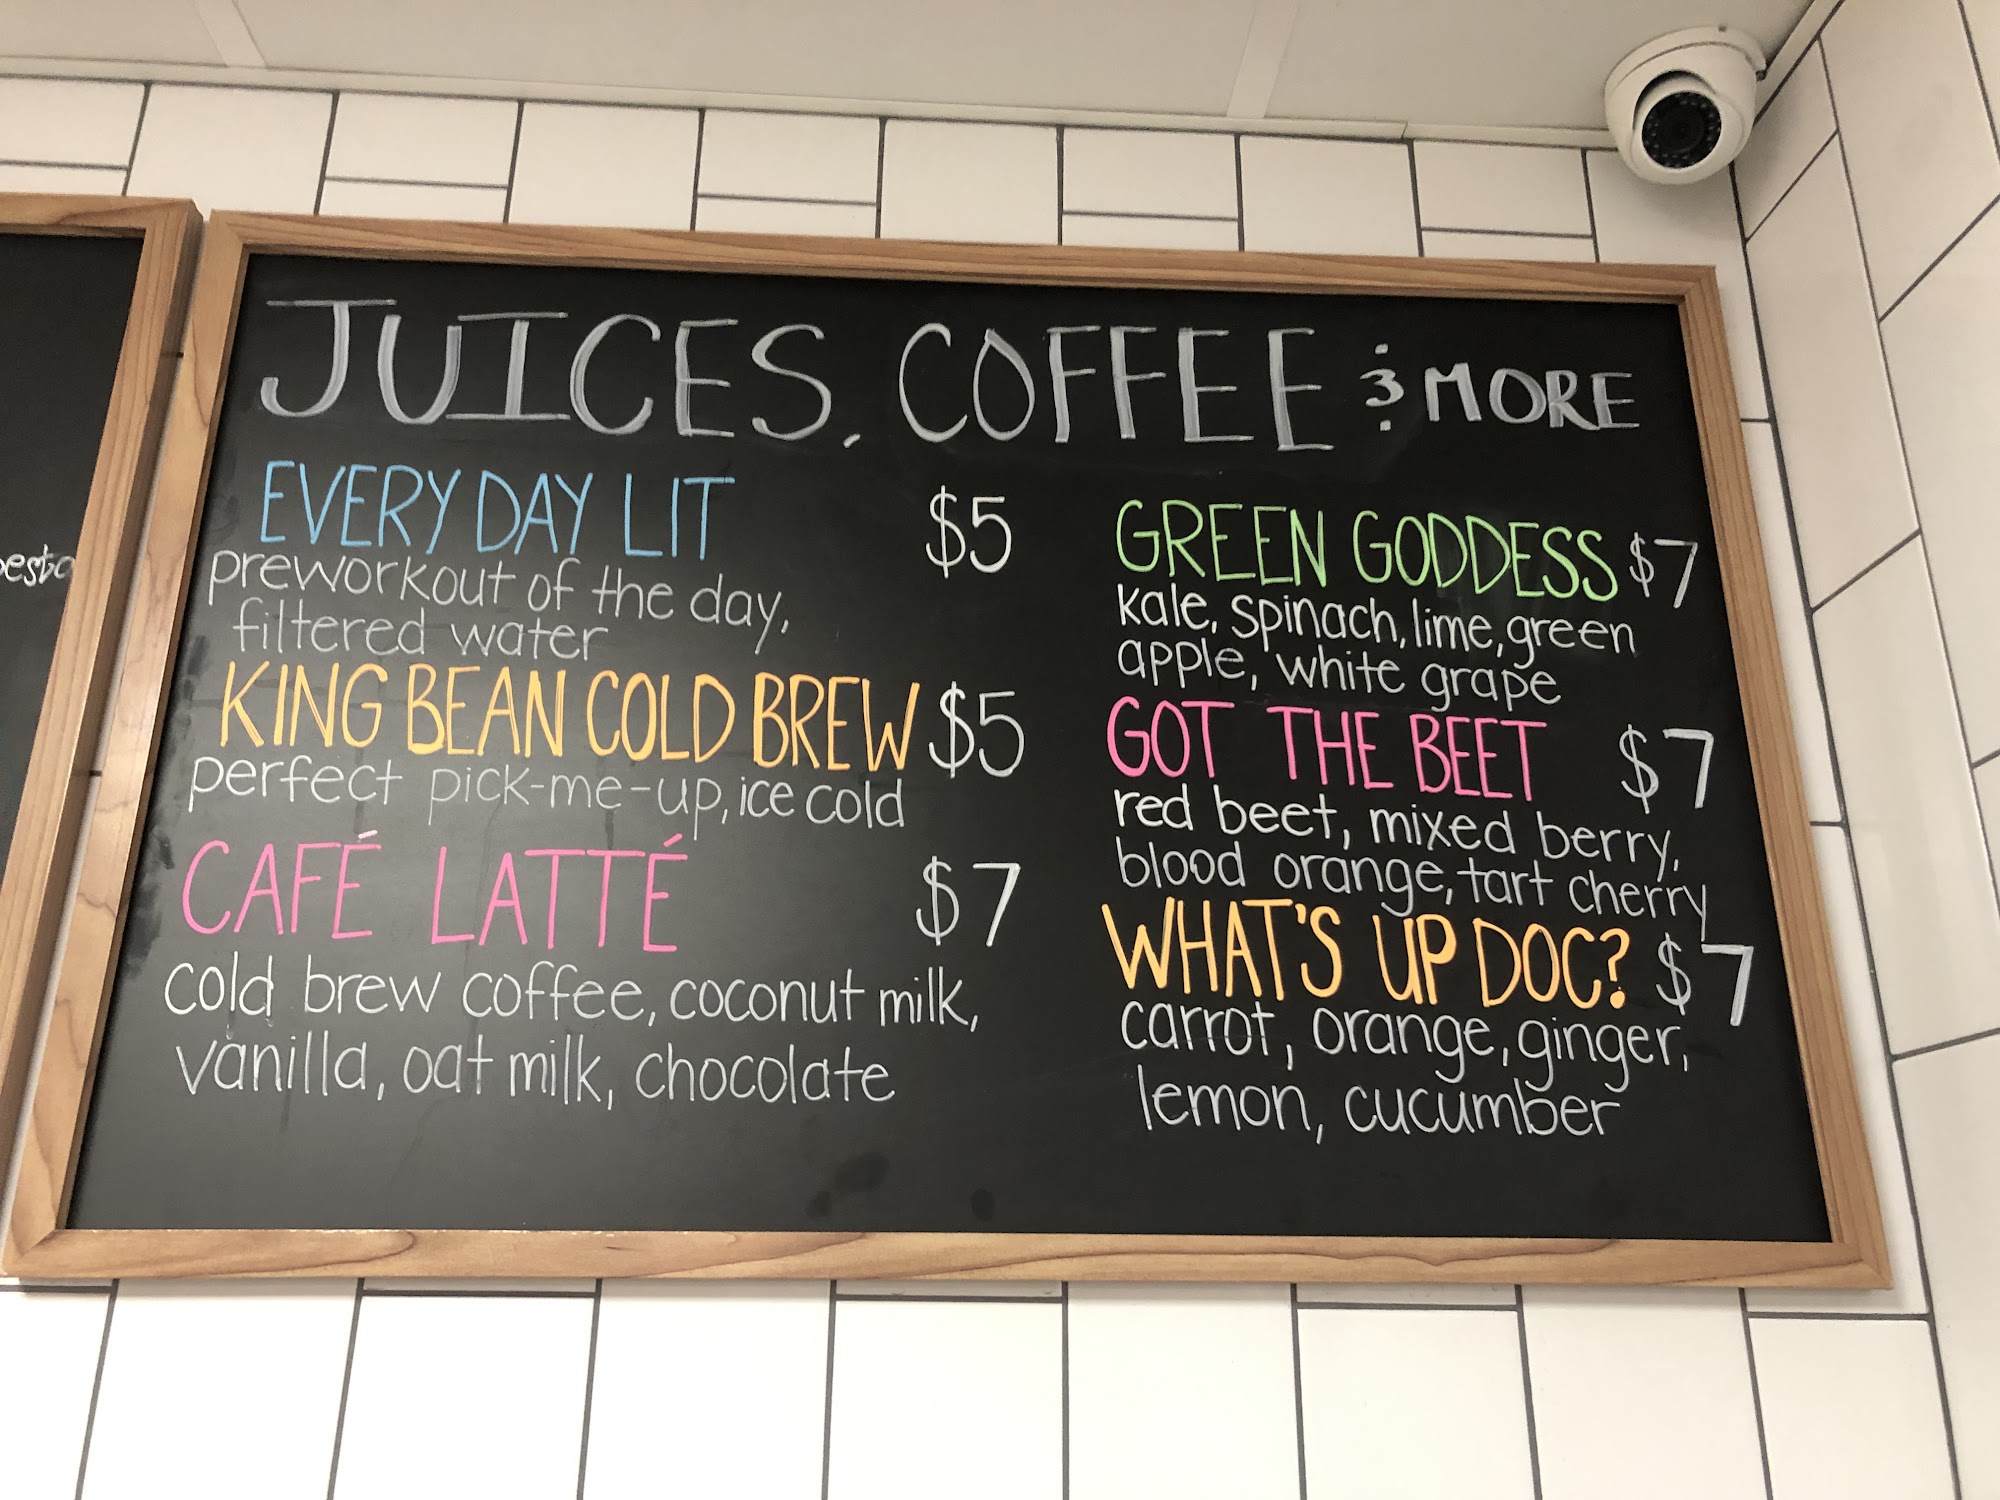 JUICES, COFFEE & MORE
EVERY DAY LIT $5
preworkout of the day,
filtered water
KING BEAN COLD BREW $5
perfect pick-me-up, ice cold
CAFÉ LATTÉ $7
cold brew coffee, coconut milk,
vanilla, oat milk, chocolate
GREEN GODDESS $7
kale, spinach, lime, green
apple, white grape
GOT THE BEET $7
red beet, mixed berry,
blood orange, tart cherry
WHAT'S UP DOC? $7
carrot, orange, ginger,
lemon, cucumber